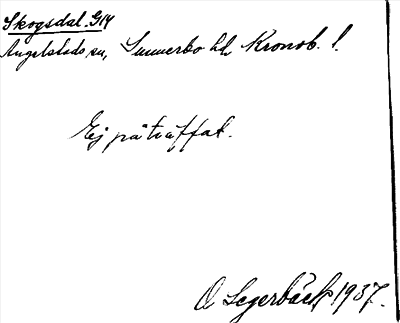 Skogsdal. G14
Angelstads sn, Sunnerbo hd. Kronob. l.
Ej påträffat.
O Segerbäck 1937.